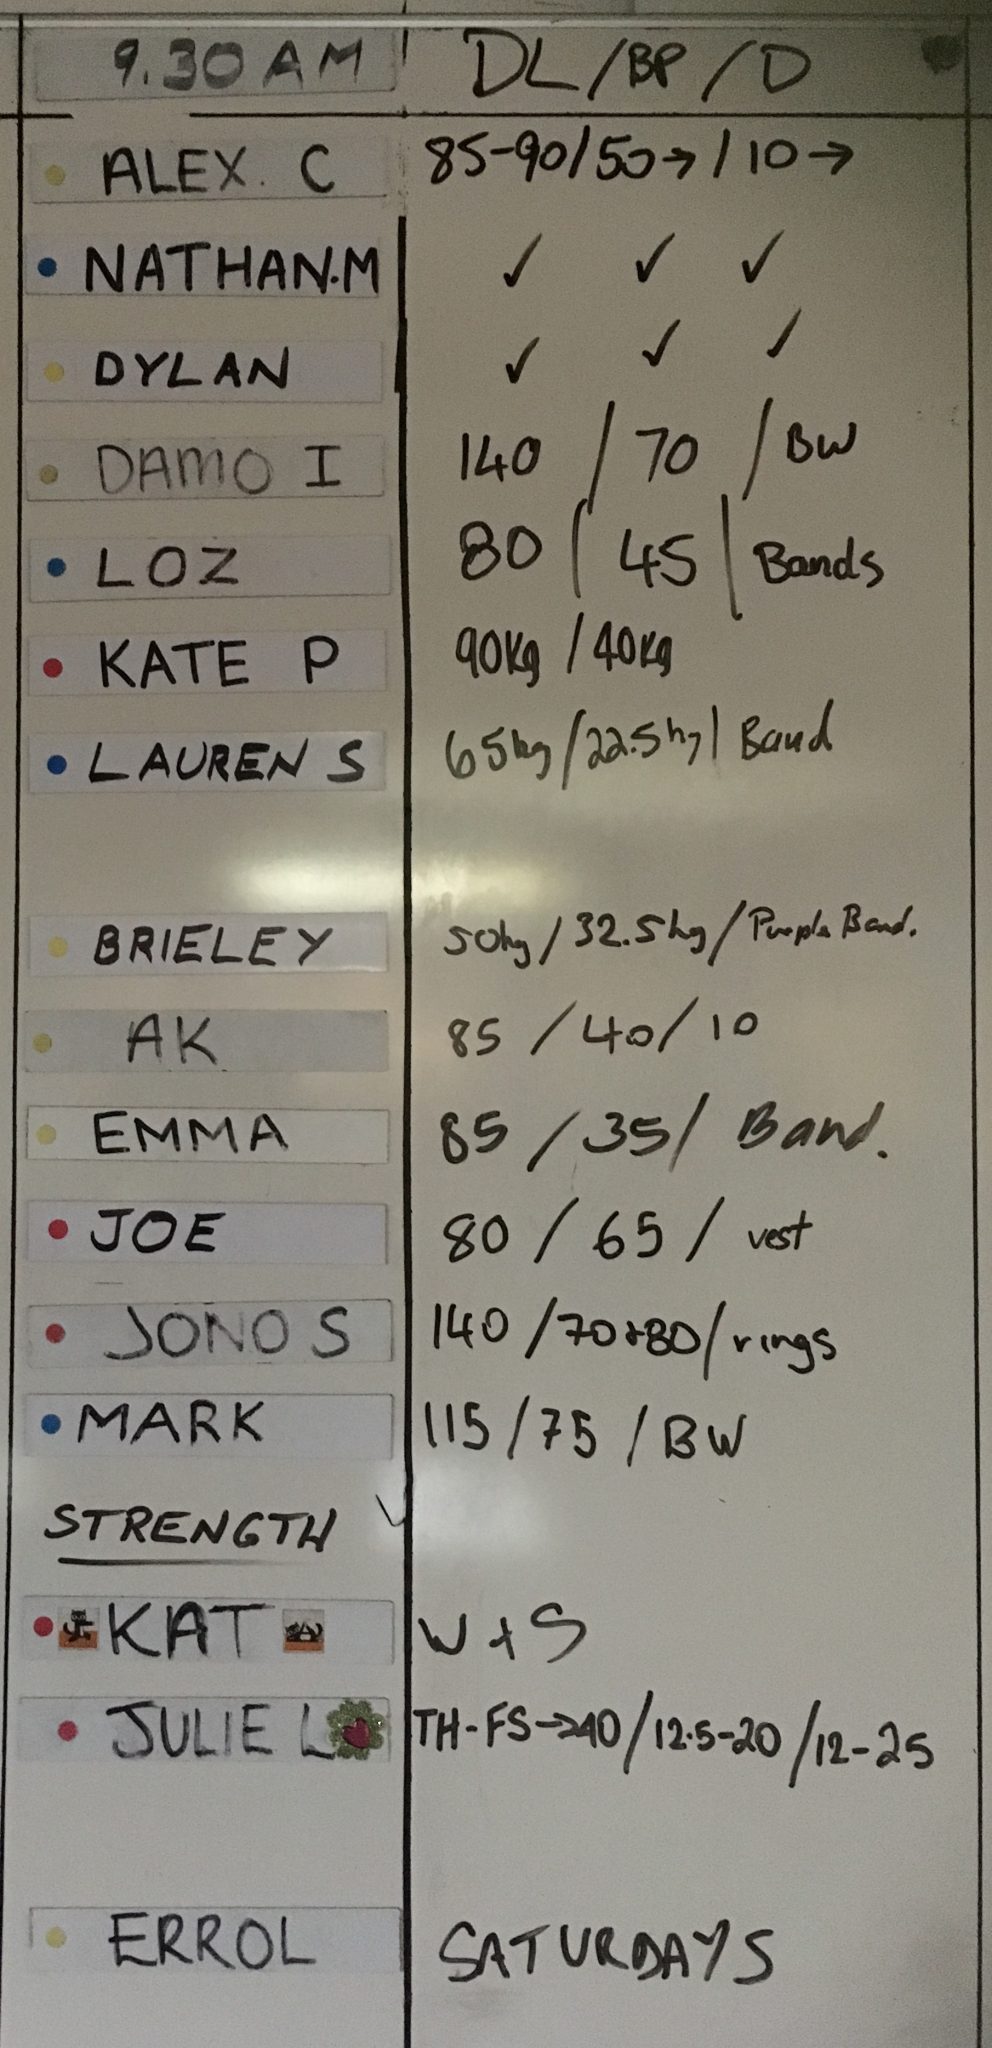 9.30 AM DL/BP/D
ALEX. C 85-90/50→/10→
NATHAN.M ✓ ✓ ✓
DYLAN ✓ ✓ ✓
DAMO I 140 / 70 / BW
LOZ 80 / 45 / Bands
KATE P 90Kg / 40Kg
LAUREN S 65kg/22.5kg/ Band
BRIELEY 50kg/32.5kg/Purple Band.
AK 85 / 40 / 10
EMMA 85 / 35 / Band.
JOE 80 / 65 / vest
JONO S 140 /70+80/rings
MARK 115 /75 / BW
STRENGTH ✓
KAT W + S
JULIE L TH-FS→40/12.5-20/12-25
ERROL SATURDAYS